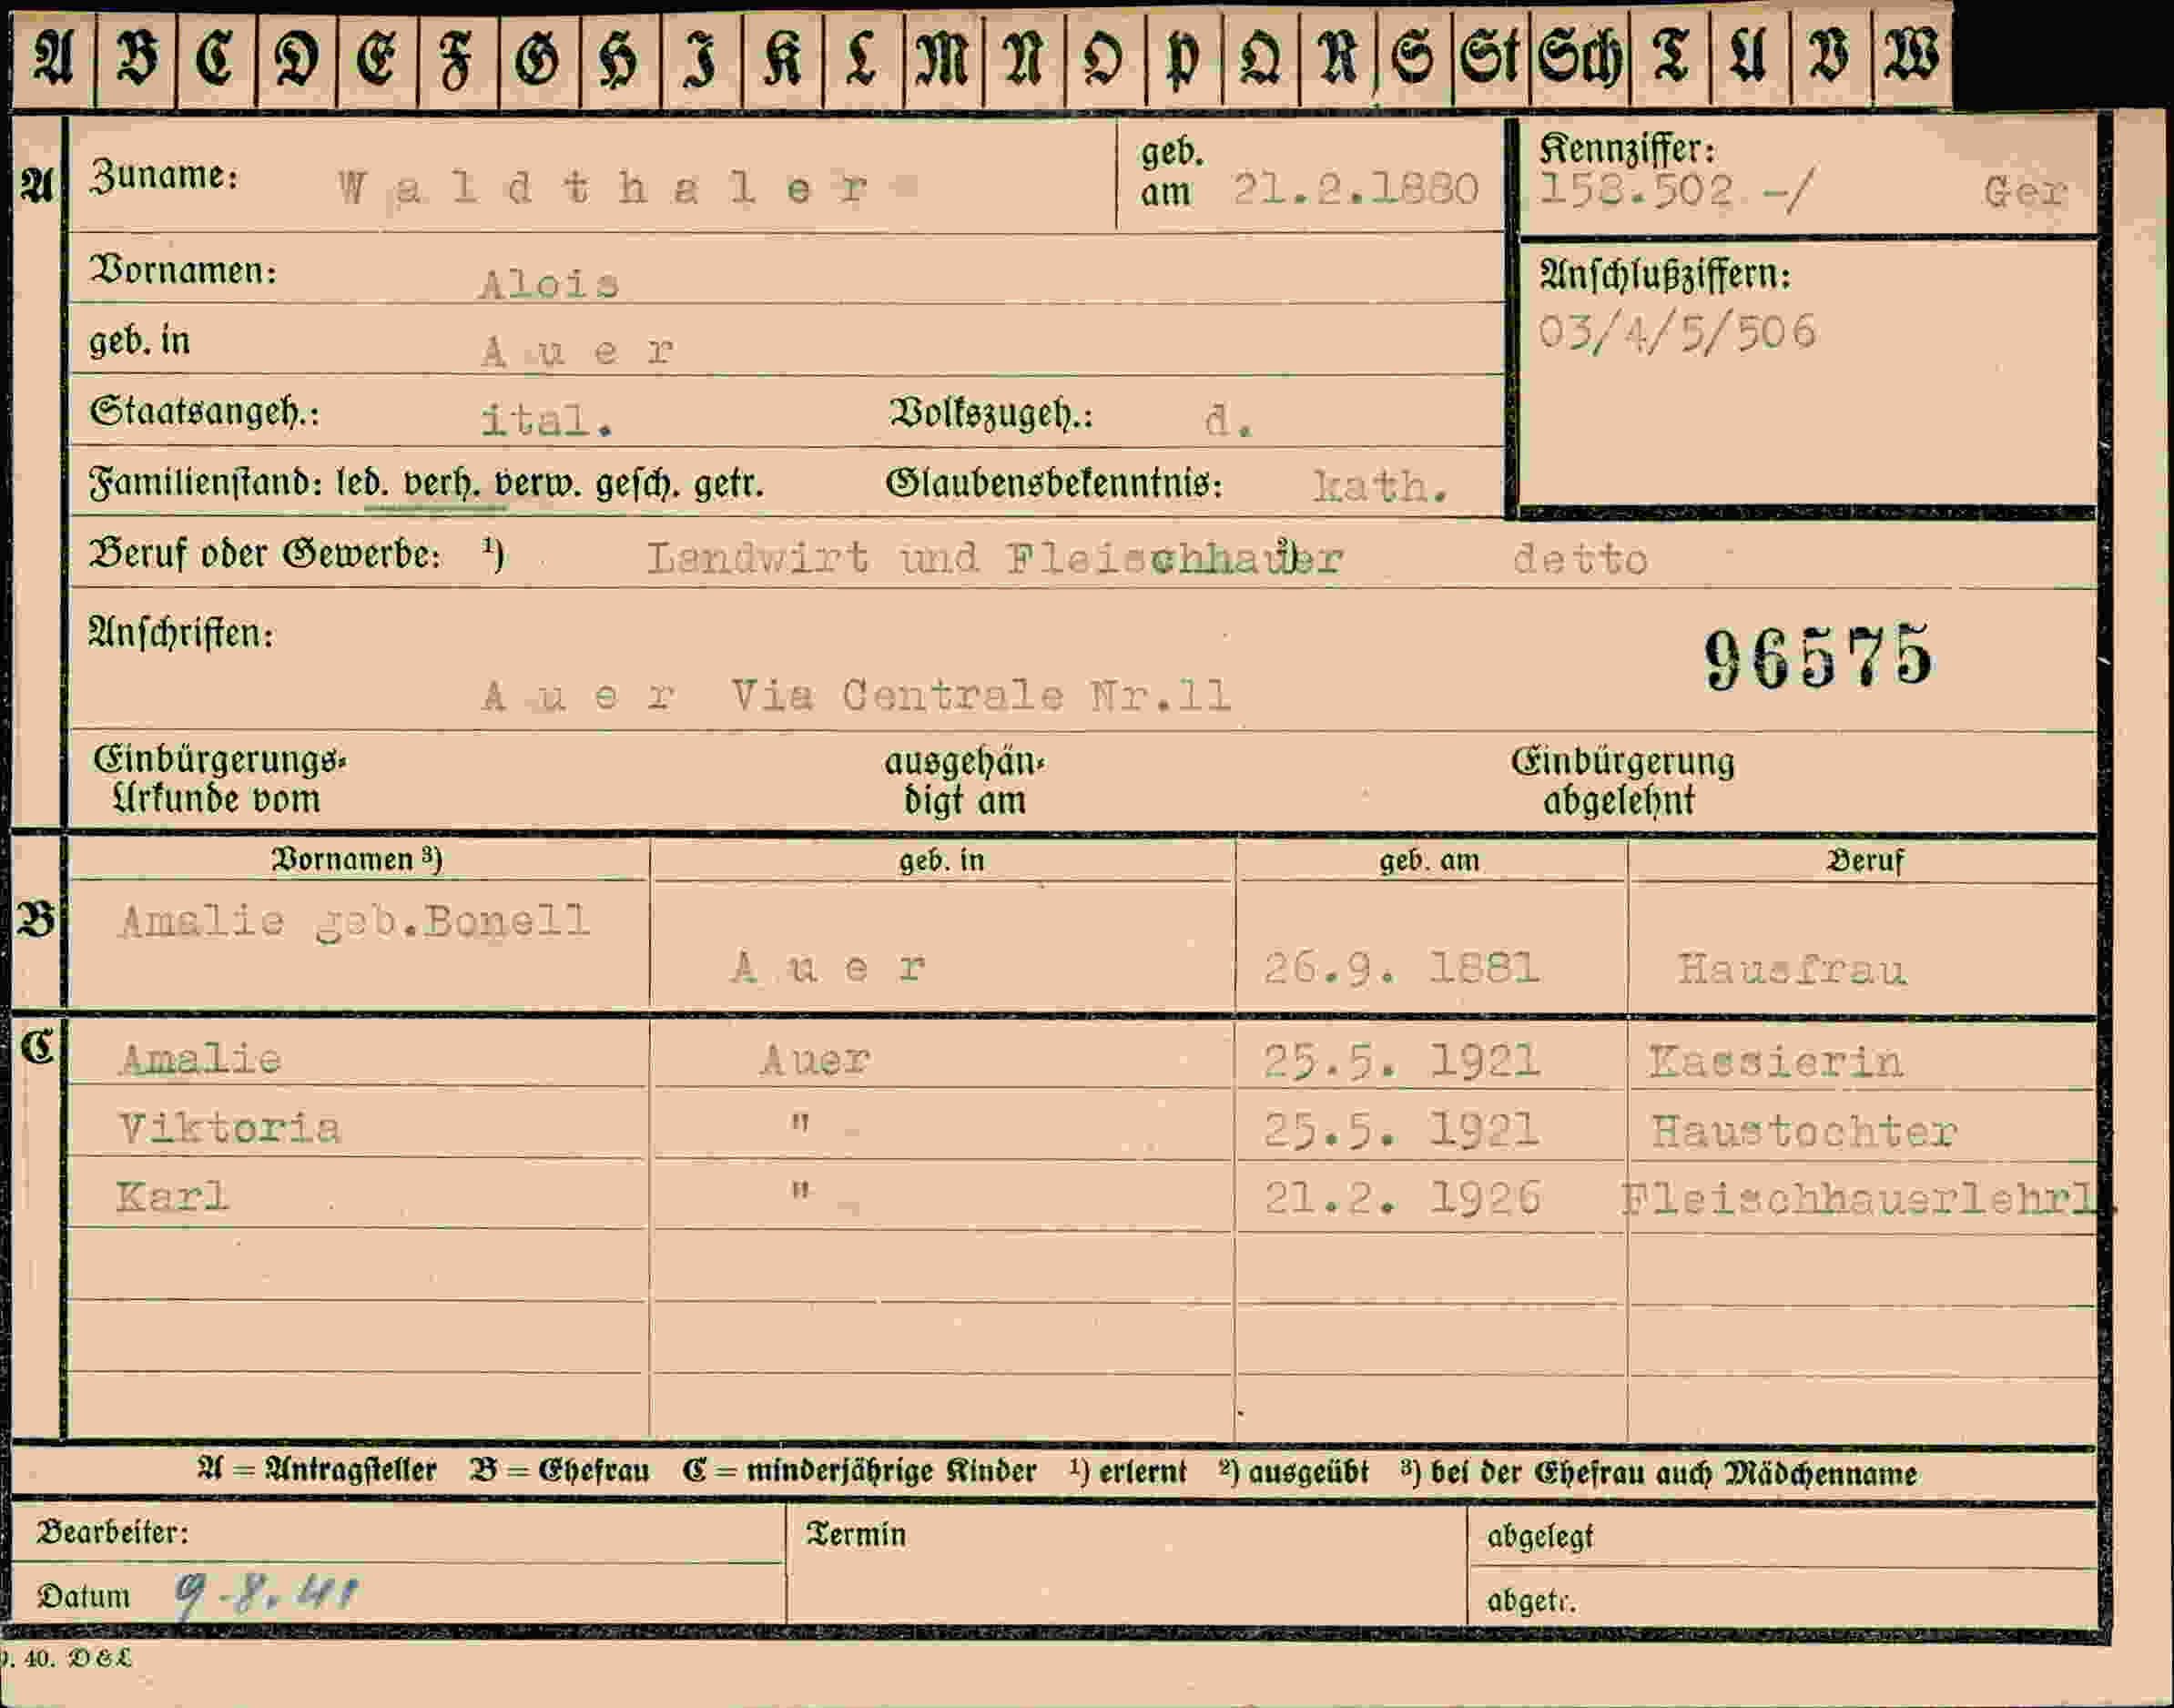 A B C D E F G H I K L M N O P Q R S St Sch T U V W
A Zuname: Waldthaler geb. am 21.2.1880 Kennziffer: 158.502 -/ Ger
Vornamen: Alois Anschlußziffern:
geb. in Auer 03/4/5/506
Staatsangeh.: ital. Volkszugeh.: d.
Familienstand: led. verh. verw. gesch. getr. Glaubensbekenntnis: kath.
Beruf oder Gewerbe: ¹) Landwirt und Fleischhauer ²) detto
Anschriften: 96575
Auer Via Centrale Nr.11
Einbürgerungs- ausgehän- Einbürgerung
Urkunde vom digt am abgelehnt
Vornamen ³) geb. in geb. am Beruf
B Amalie geb.Bonell
Auer 26.9. 1881 Hausfrau
C Amalie Auer 25.5. 1921 Kassierin
Viktoria " 25.5. 1921 Haustochter
Karl " 21.2. 1926 Fleischhauerlehrl.
A = Antragsteller B = Ehefrau C = minderjährige Kinder ¹) erlernt ²) ausgeübt ³) bei der Ehefrau auch Mädchenname
Bearbeiter: Termin abgelegt
Datum 9-8.41 abgetr.
40. D & L